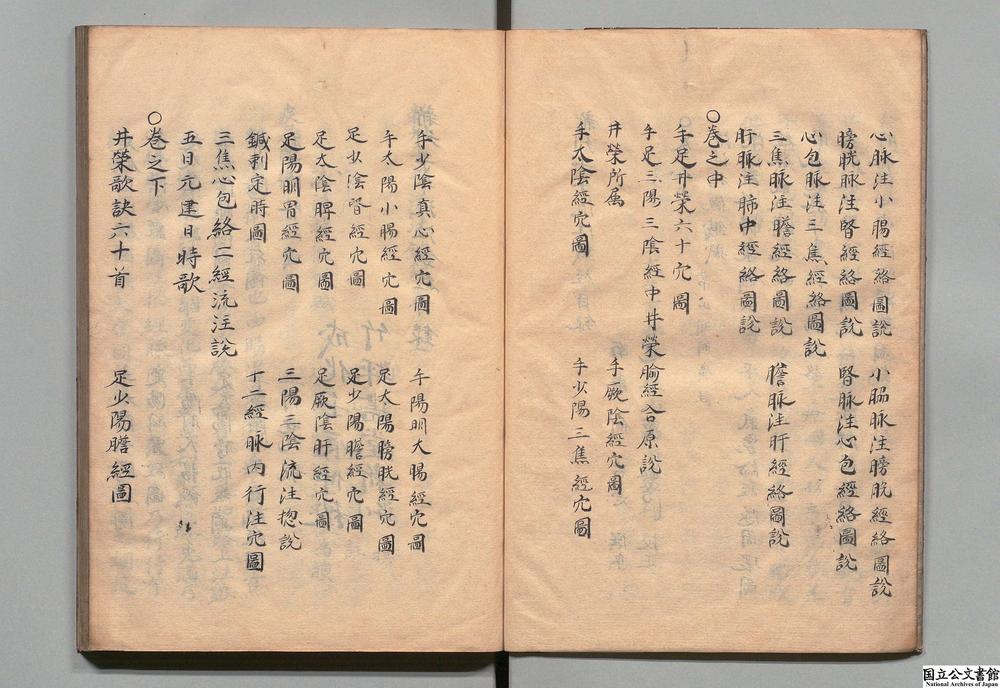 心脉注小腸經絡圖説 小腸脉注膀胱經絡圖説
膀胱脉注腎經絡圖説 腎脉注心包經絡圖説
心包脉注三焦經絡圖説
三焦脉注膽經絡圖説 膽脉注肝經絡圖説
肝脉注肺中經絡圖説
○卷之中
手足井榮六十穴圖
手足三陽三陰經中井榮腧經合原説
井榮所属 手厥陰經穴圖
手太陰經穴圖 手少陽三焦經穴圖
手少陰真心經穴圖 手陽明大腸經穴圖
手太陽小腸經穴圖 足太陽膀胱經穴圖
足少陰腎經穴圖 足少陽膽經穴圖
足太陰脾經穴圖 足厥陰肝經穴圖
足陽明胃經穴圖 三陽三陰流注揔説
鍼刺定時圖 十二經脉内行注穴圖
三焦心包絡二經流注説
五日元建日時歌
○卷之下
井榮歌訣六十首 足少陽膽經圖
国立公文書館
National Archives of Japan